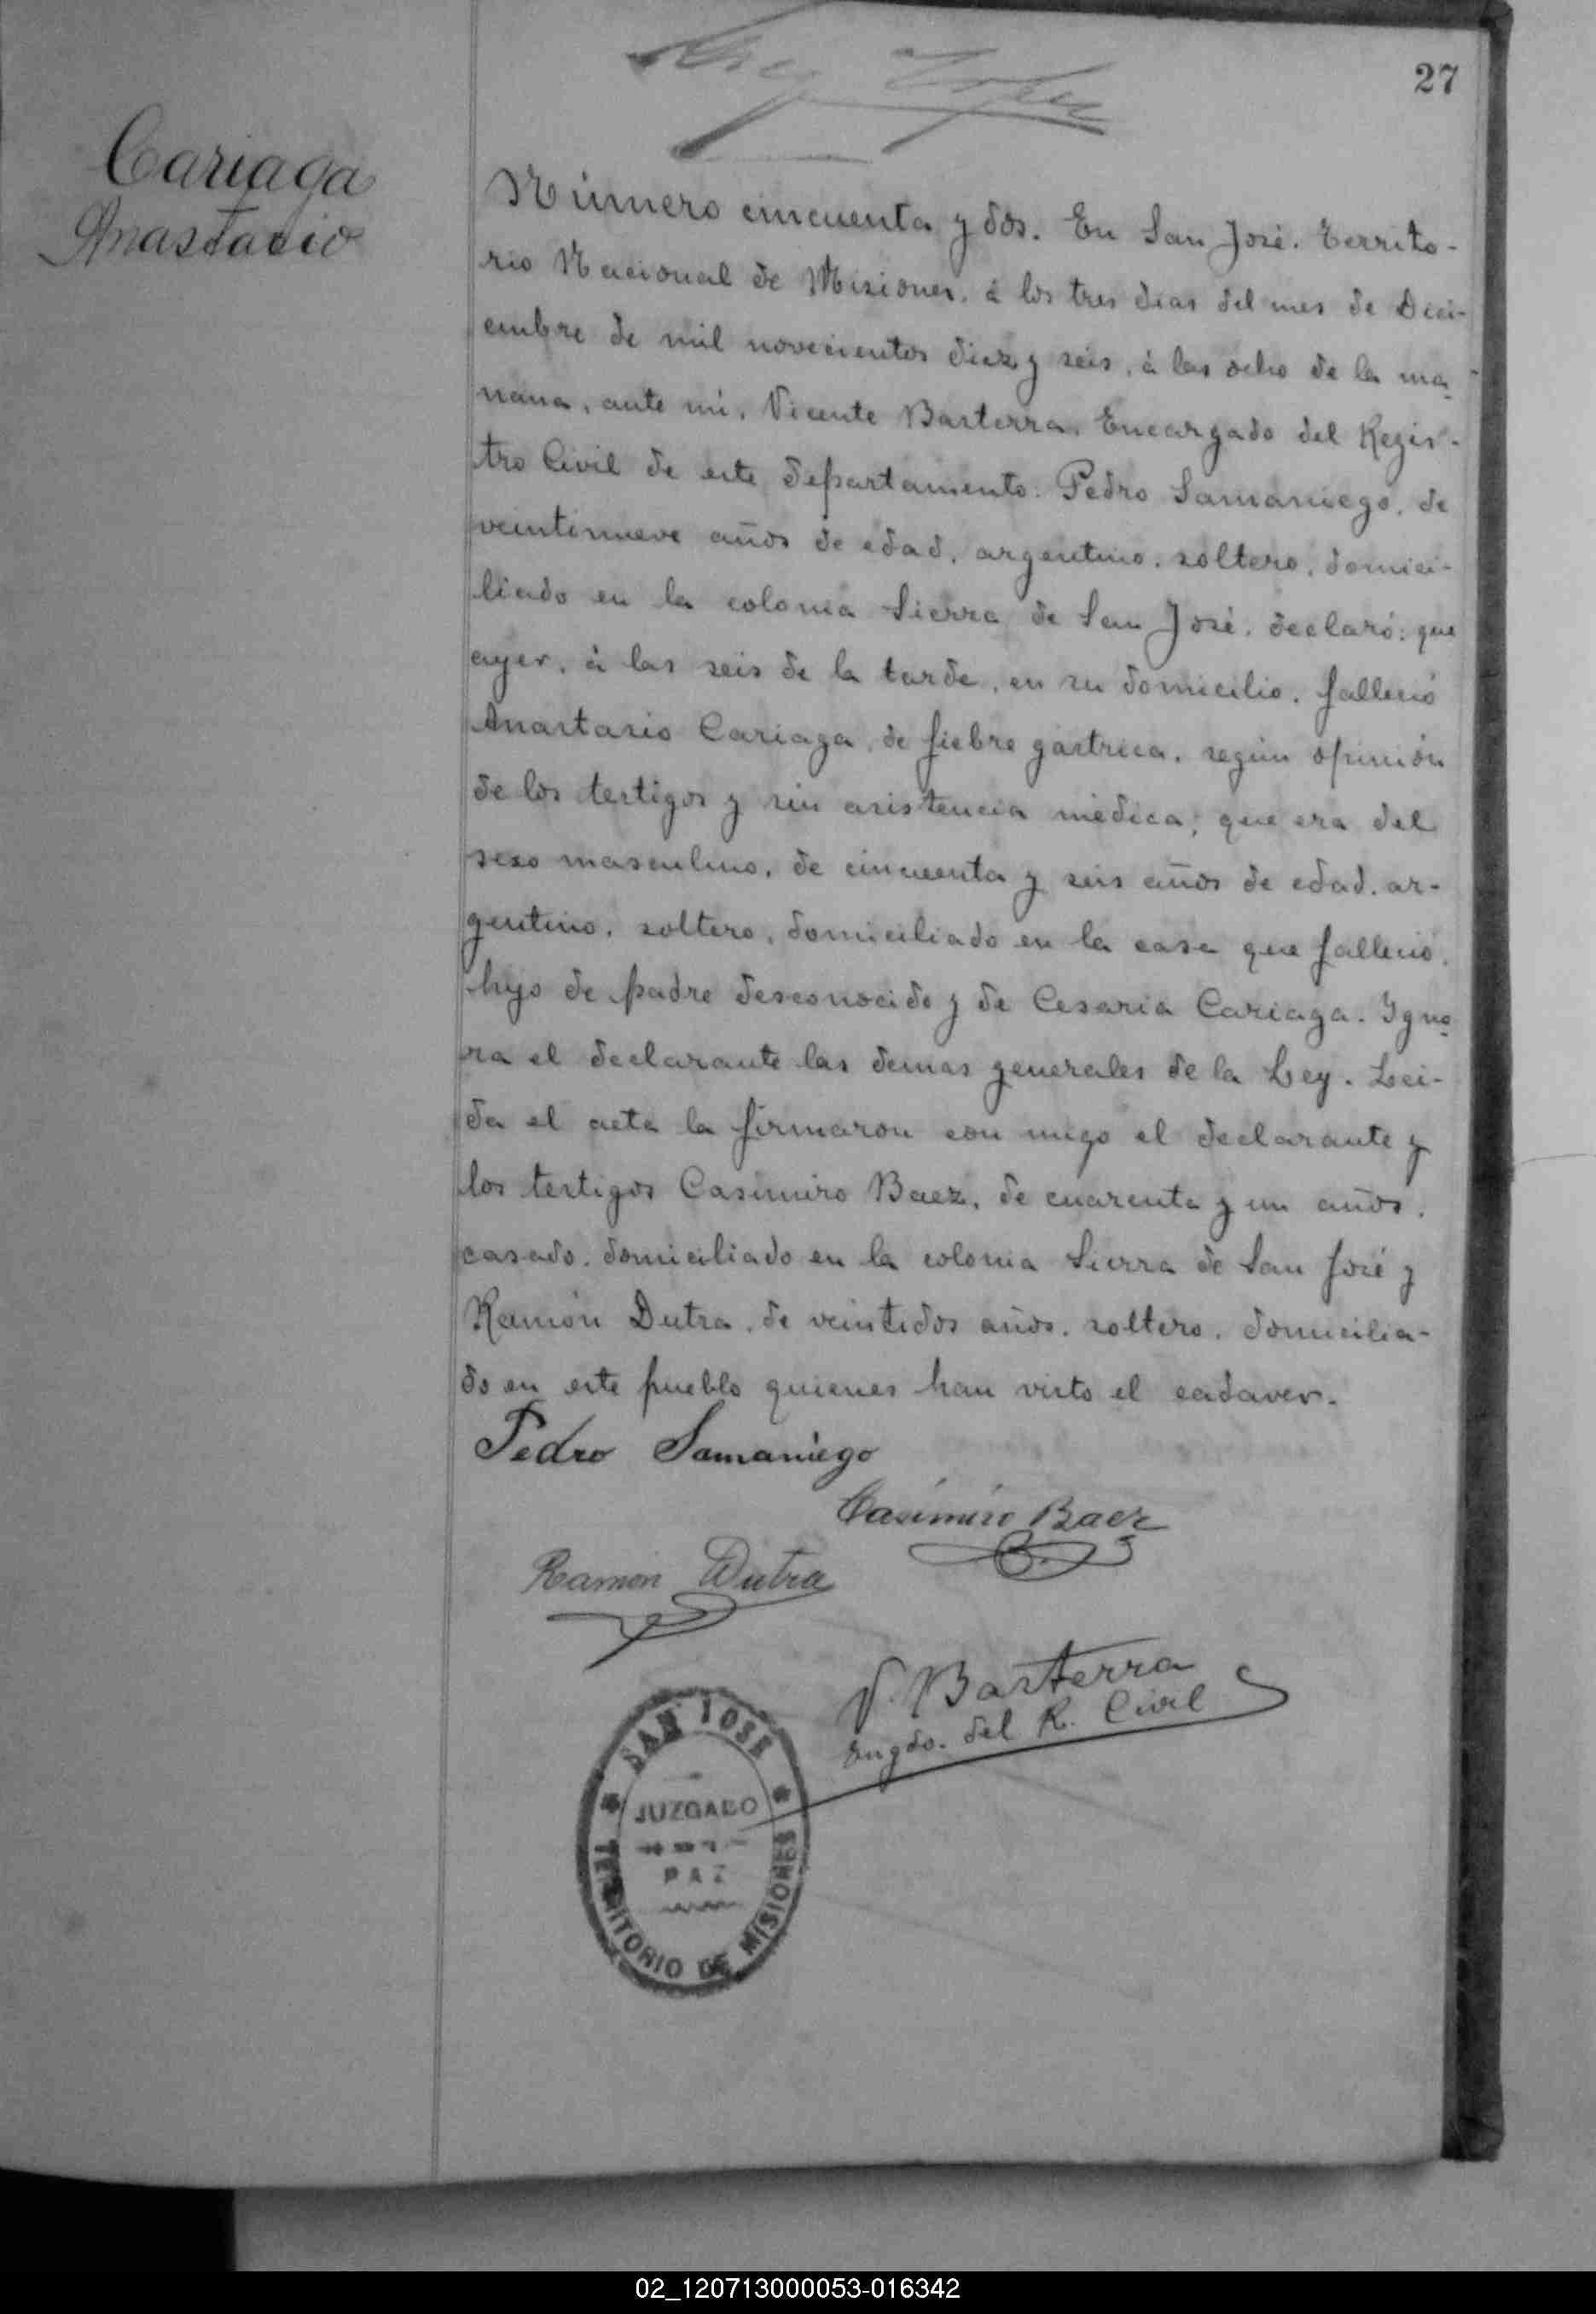 27
Cariaga
Anastacio
Número cincuenta y dos. En San José. Territo-
rio Nacional de Misiones, á los tres dias del mes de Dici-
embre de mil novecientos diez y seis, á las ocho de la ma-
ñana, ante mi, Vicente Basterra, Encargado del Regis-
tro Civil de este departamento: Pedro Samaniego, de
veintinueve años de edad, argentino, soltero, domici-
liado en la colonia Sierra de San José, declaró: que
ayer, á las seis de la tarde, en su domicilio, falleció
Anastasio Cariaga, de fiebre gástrica, según opinión
de los testigos y sin asistencia médica; que era del
sexo masculino, de cincuenta y seis años de edad, ar-
gentino, soltero, domiciliado en la casa que falleció,
hijo de padre desconocido y de Cesaria Cariaga. Igno-
ra el declarante las demas generales de la Ley. Lei-
da el acta la firmaron con migo el declarante y
los testigos Casimiro Baez, de cuarenta y un años,
casado, domiciliado en la colonia Sierra de San José y
Ramón Dutra, de veintidos años, soltero, domicilia-
do en este pueblo quienes han visto el cadaver.
Pedro Samaniego
Casimiro Baez
Ramón Dutra
V. Basterra
Engdo. del R. Civil
SAN JOSE
JUZGADO
PAZ
TERRITORIO DE MISIONES
02_120713000053-016342